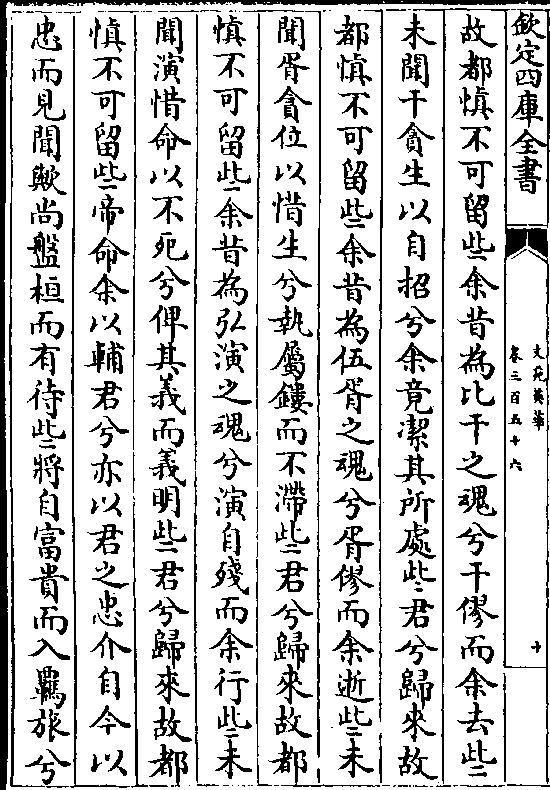 欽定四庫全書
文苑英華
卷三百五十六
十
故都慎不可留些二余昔為比干之魂兮干僇而余去些二
未聞干貪生以自招兮余竟潔其所處些二君兮歸來故
都慎不可留些二余昔為伍胥之魂兮胥僇而余逝些二未
聞胥貪位以惜生兮執屬鏤而不滯些二君兮歸來故都
慎不可留些二余昔為弘演之魂兮演自殘而余行些二未
聞演惜命以不死兮俾其義而義明些二君兮歸來故都
慎不可留些二帝命余以輔君兮亦以君之忠介自今以
忠而見聞歟尚盤桓而有待些二將自富貴而入羈旅兮